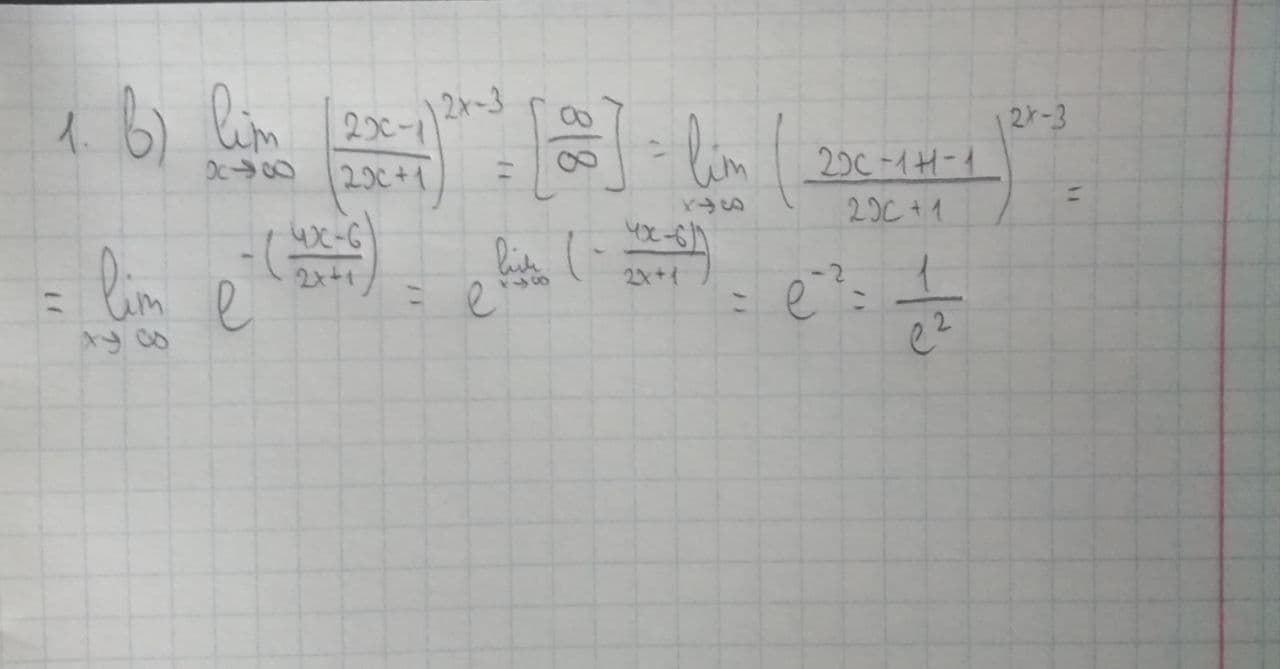 1. в) lim x→∞ ((2x-1)/(2x+1))^(2x-3) = [∞/∞] = lim x→∞ ((2x-1+1-1)/(2x+1))^(2x-3) =
= lim x→∞ e^(-((4x-6)/(2x+1))) = e^(lim x→∞ (-(4x-6))/(2x+1))) = e^(-2) = 1/e^2